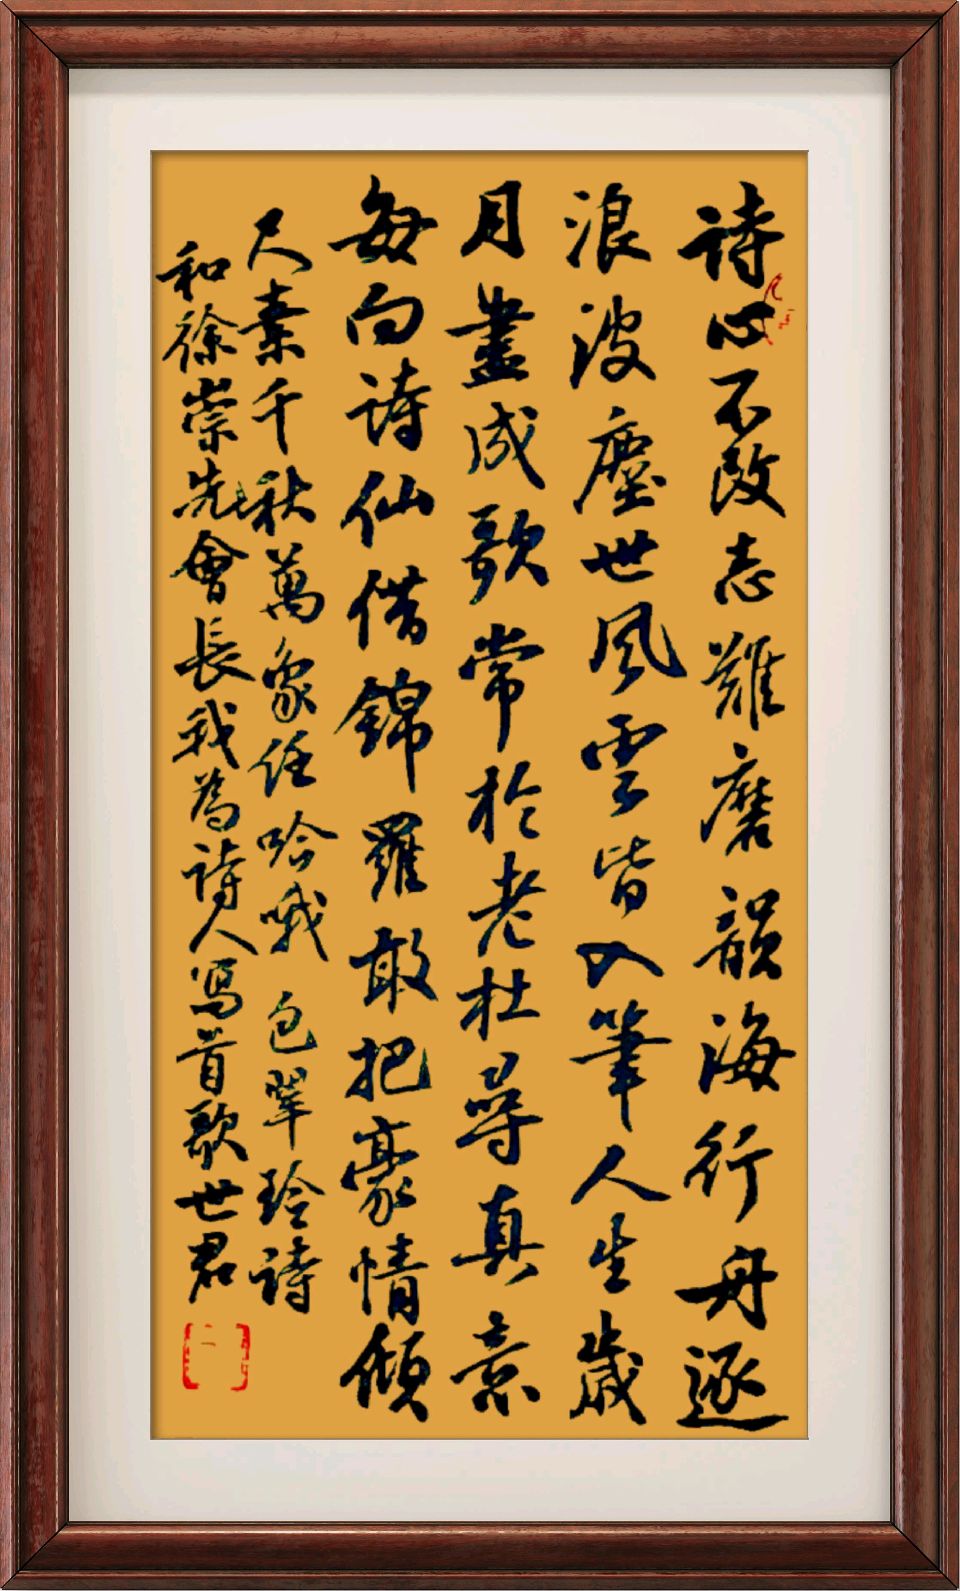 詩心不改志難磨韻海行舟逐
浪波塵世風雲皆入筆人生歲
月盡成歌常於老杜尋真意
每向詩仙借錦羅敢把豪情傾
尺素千秋萬象任吟哦 包翠玲詩
和徐崇先會長我為詩人寫首歌世君